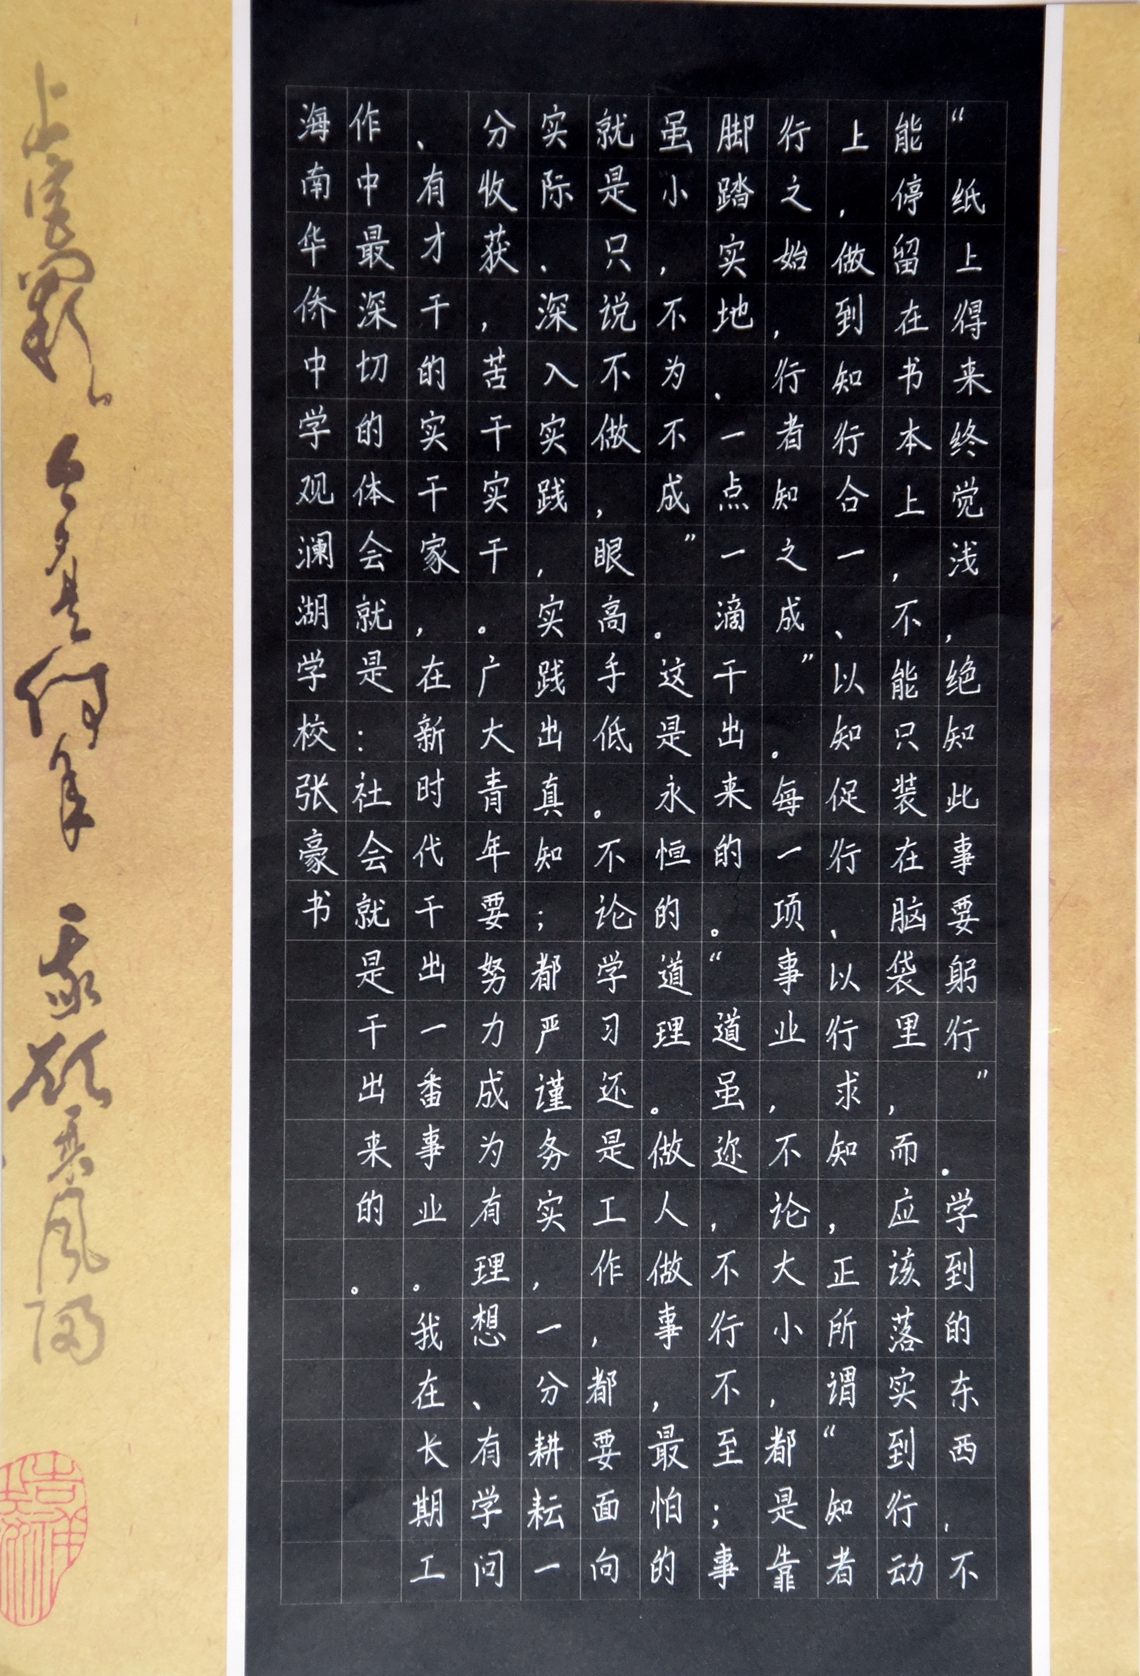 “纸上得来终觉浅，绝知此事要躬行”。学到的东西，不
能停留在书本上，不能只装在脑袋里，而应该落实到行动
上，做到知行合一、以知促行、以行求知，正所谓“知者
行之始，行者知之成”。每一项事业，不论大小，都是靠
脚踏实地、一点一滴干出来的。“道虽迩，不行不至；事
虽小，不为不成”。这是永恒的道理。做人做事，最怕的
就是只说不做，眼高手低。不论学习还是工作，都要面向
实际、深入实践，实践出真知；都严谨务实，一分耕耘一
分收获，苦干实干。广大青年要努力成为有理想、有学问
、有才干的实干家，在新时代干出一番事业。我在长期工
作中最深切的体会就是：社会就是干出来的。
海南华侨中学观澜湖学校张豪书
今夕是何年 我欲乘风归